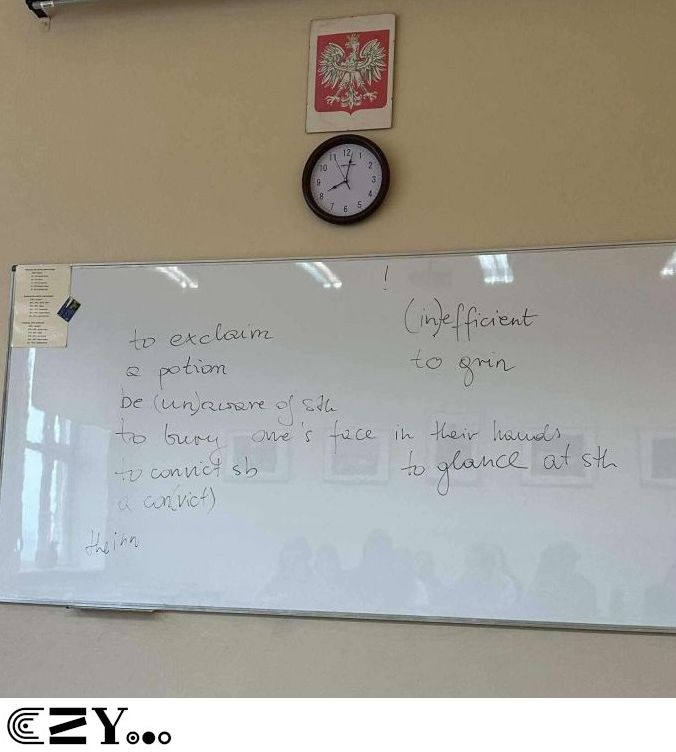 11 12 1
10 2
9 3
8 4
7 6 5
!
to exclaim
a potion
be (un)aware of sth
to bury one's face in their hands
to convict sb
a con(vict)
the inn
(in)efficient
to grin
to glance at sth
CZY...